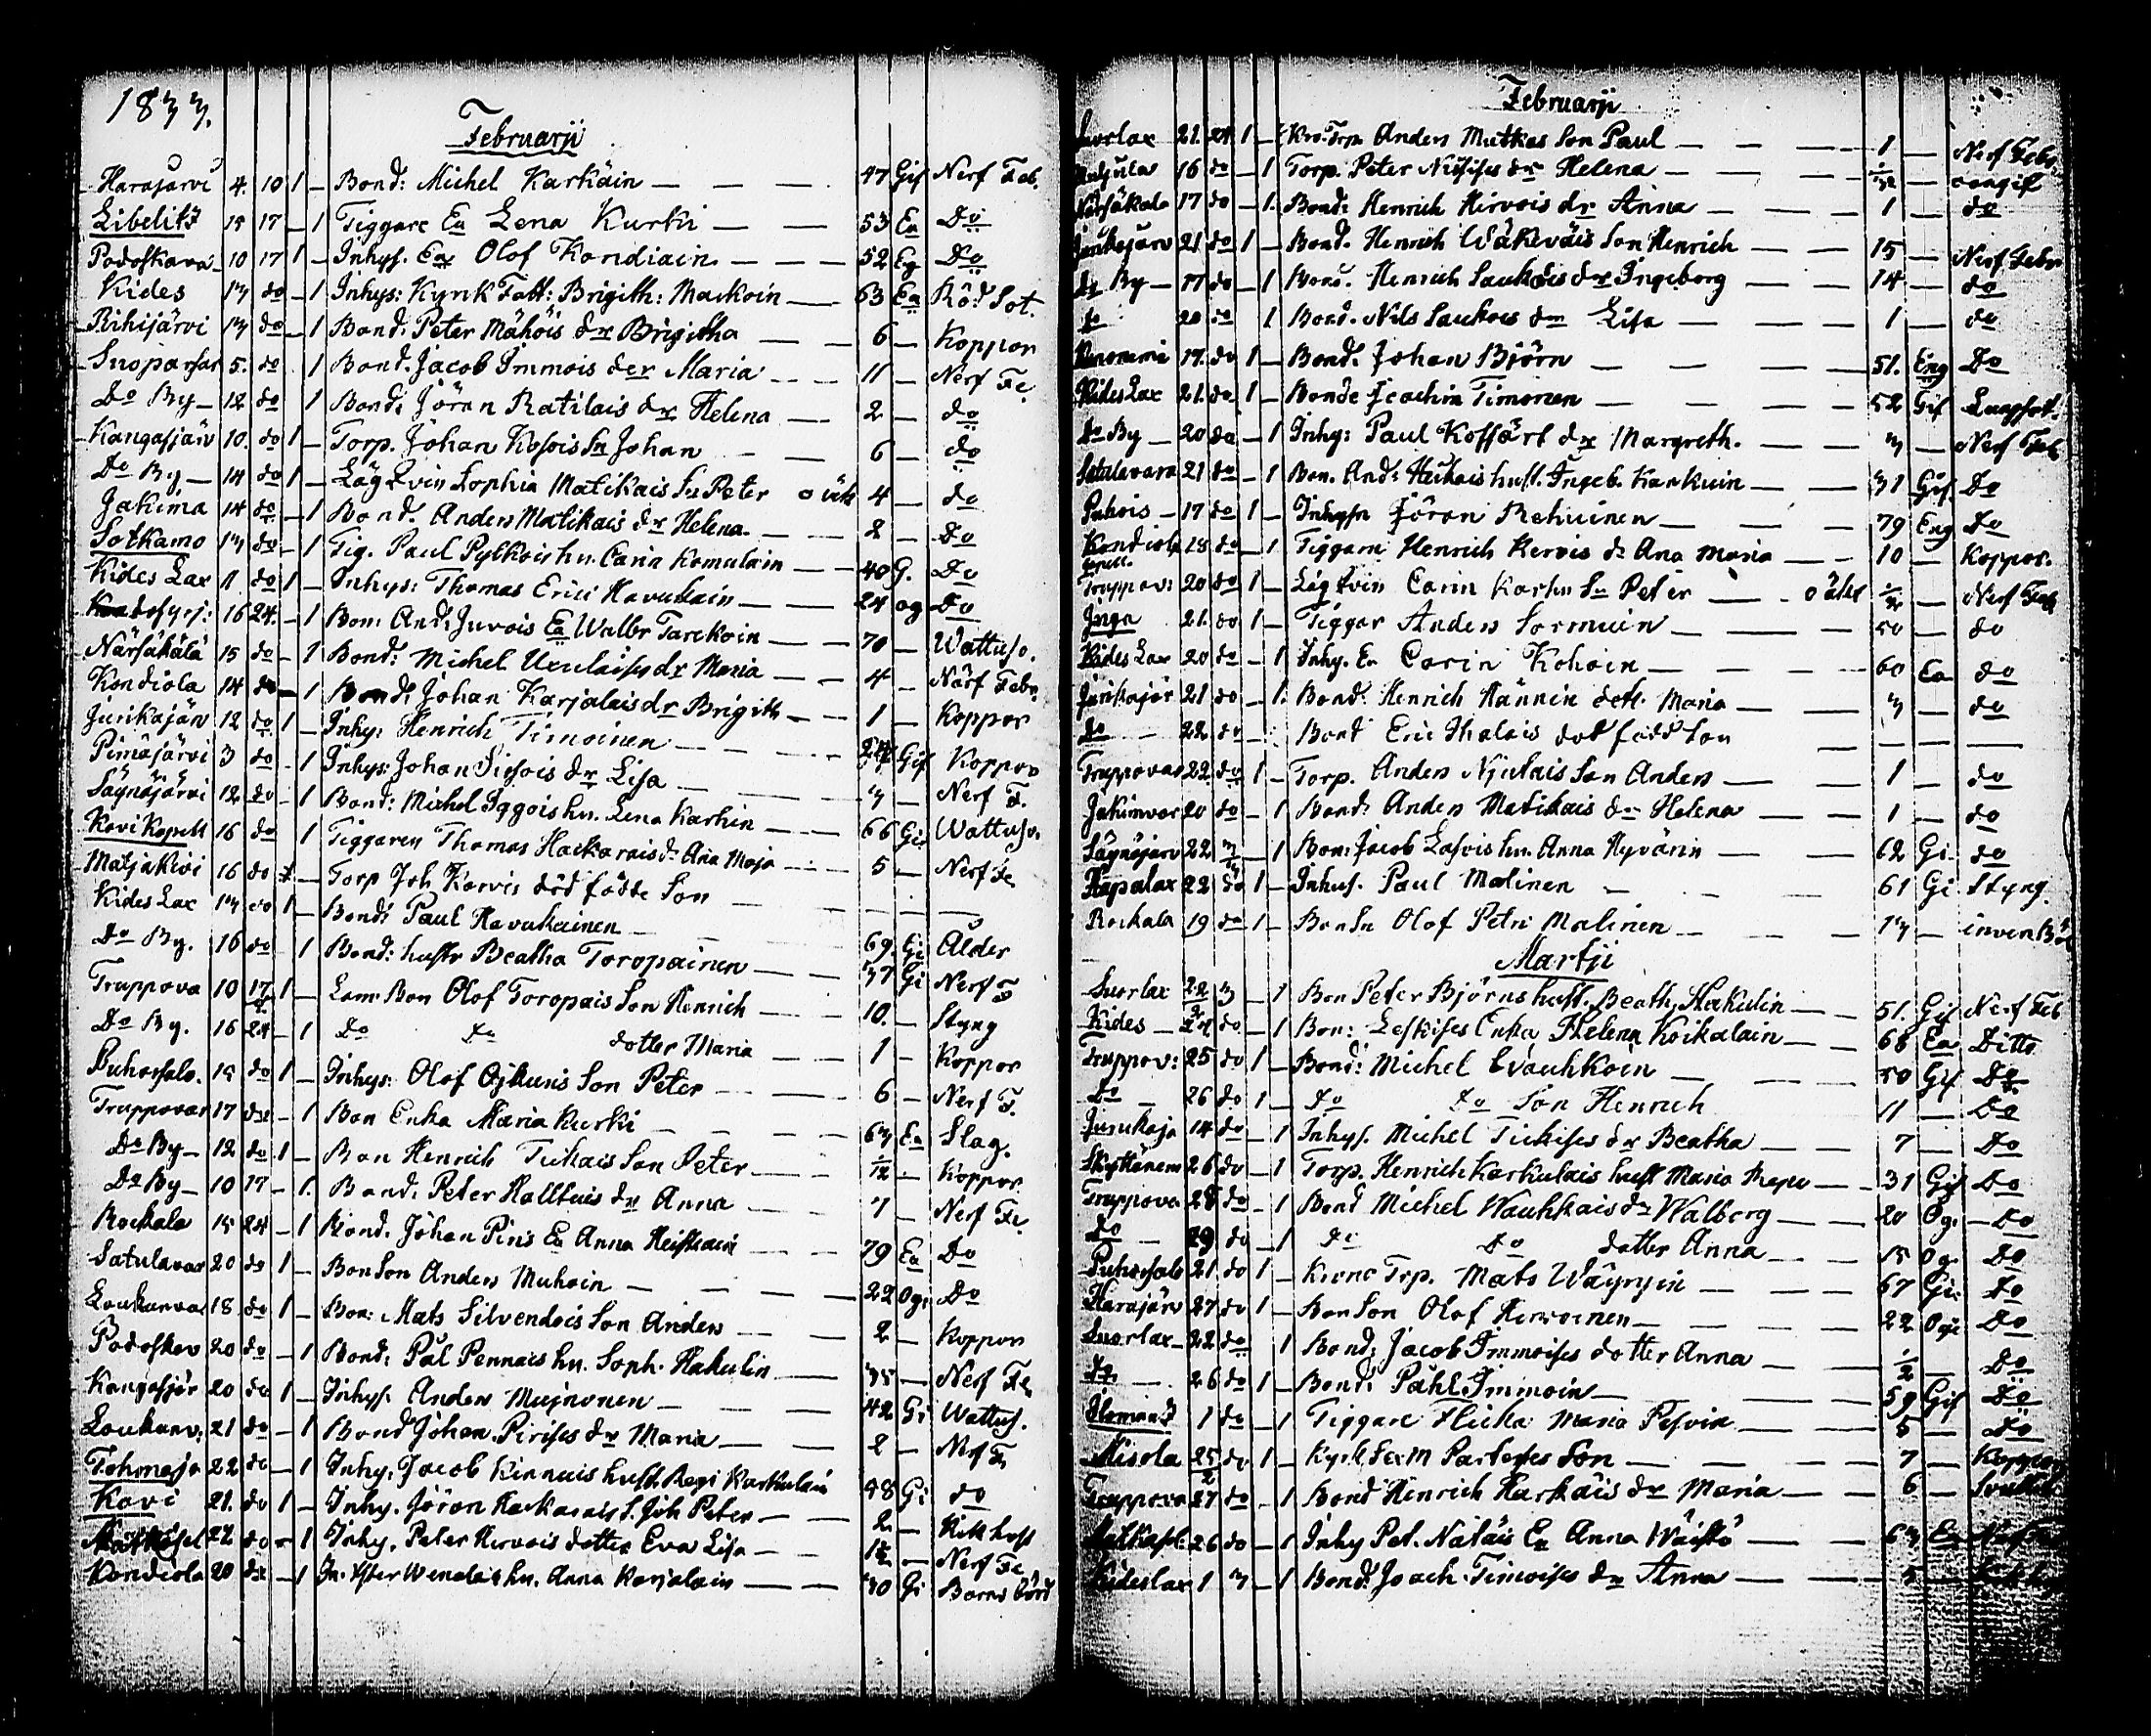 1833.
Februarji
Harajärvi 4. 10 1 – Bond: Michel Karkäin — — — 47 Gif Nerf Feb.
Libelitz 15 17 – 1 Tiggare Ea Lena Kurki — — 53 Ea Do
Podoskava 10 17 1 – Inhys. Olof Kondiain — — — 52 Do
Kides 13 do – 1 Inhys: Kyrik Fatt: Brigith: Mackoin — 63 Ea Röd Sot.
Rihijärvi 13 do – 1 Bond: Peter Mähöis dr Brigitha — — 6 – Koppor
Suoparsar 5. do 1 Bond. Jacob Immois der Maria — — 11 – Nerf Fe
Do By – 12 do 1 Bond: Jöran Ratilais dr Helena — 2 – do
Kangasjärv 10. do 1 – Torp. Johan Kosois Sn Johan — — 6 – do
Do By – 14 do 1 – Läg Qvin Sophia Matikais Sn Peter o äkt 4 – do
Jakima 14 do – 1 Bond. Anders Matikais dr Helena — — 2 – Do
Sotkamo 13 do – 1 Tig. Paul Pylkkois hu. Carin Komulain — — 40 G. Do
Kides Lax 11 do 1 – Inhys: Thomas Erici Havukain — — 24 og Do
16 24. – 1 Bon: And: Juvois Ea Walbr Tarckoin — — 70 – Wattuso.
Närsäkälä 15 do – 1 Bond: Michel dr Maria — — 4 – Närf Febr.
Kondiola 14 do – 1 Bond: Johan Karjalais dr Brigith — — 1 – Koppor
Jurikajärv 12 do 1 – Inhy: Henrich Timoinen — — — 24 Gif Koppor
Pimäjärvi 3 do . 1 Inhys: Johan Sissois dr Lisa — — — 3 – Nerf F.
Säynäjärvi 12 do – 1 Bond: Michel Iggois hu. Lena Karhin — — 66 Gi Wattuso.
Kavi Kapell 16 do 1 Tiggaren Thomas Hackarais dr Ana Maja — — 5 – Nerf Fe
Matjakivi 16 do – Torp Joh Korvis död födde Son — — — —
Kides Lax 13 do 1 – Bond: Paul Havukainen — — — 69. Gi Ålder
Do By. 16 do 1 Bond: hustr Beatha Toropainen — — 37 Gi Nerf F
Truppova 10 17 1 – Lam: Bon Olof Toropais Son Henrich — — 10. – Styng
Do By. 16 24 – 1 Do Do dotter Maria — — 1 – Koppor
Puhossalo. 15 do 1 – Inhys: Olof Ojkuris Son Peter — — — 6 – Nerf F.
Truppovar 17 do – 1 Bon Enka Maria Kurki — — — 63 Ea Slag.
Do By – 12 do 1 – Bon Henrich Tickais Son Peter — — 1/12 – Koppor
Do By – 10 17 – 1. Bond: Peter Halttuis dr Anna — — 7 – Nerf Fe
Rockala 15 24 – 1 Bond. Johan Piris Ea Anna Heiskain — — 79 Ea Do
Satulavar 20 do 1 – Bon Son Anders Muhoin — — — 22 Ogi Do
Loukunvar 18 do 1 – Bon: Mats Silvendois Son Anders — — 2 – Koppor
Podoskav 20 do – 1 Bond: Pål Pennais hu. Soph. Hakulin — — 35 – Nerf Fe
Kangasjär 20 do 1 – Inhys. Anders Mujnonen — — — 42 Gi Wattus.
Loukunv: 21 do – 1 Bond Johan Pirises dr Maria — — 2 – Nerf F
Tohmaja 22 do – 1 Inhy. Jacob Kinnuis hustr Regi Karhulain 48 Gi do
Kavi 21. do 1 – Inhy. Jöran Hackarais S. Joh Peter — — 2 – Kikhost
22 do – 1 Inhy. Peter Hirvois dotter Eva Lisa — — 1 1/2 – Nerf Fe
Kondiola 20 do – 1 In. Wenäläis hu. Anna Karjalain — — 30 Gi Barnsbörd
Februarji
Suorlax 21. 24 1 – Kro: Torp Anders Mutkas Son Paul — — — 1 – Nerf Febr.
16 do – 1 Torp. Peter dr Helena — — — 1/32 – oangif
Närsäkala 17 do – 1. Bond: Henrich Hirvois dr Anna — — — 1 – do
Jurikajärv 21 do 1 – Bond. Henrich Wäkeväis Son Henrich — — 15 – Nerf Febr
Do By – 17 do – 1 Bond. Henrich Saukois dr Ingeborg — — 14 – do
Do 20 do 1 Bond. Nils Saukois dr Lisa — — — 1 – do
17. do 1 – Bond. Johan Björn — — — 51. Eng Do
Kides Lax 21. do 1 – Bonde Joachim Timonen — — — 52 Gif Lungsot.
Do By – 20 do – 1 Inhy: Paul Kossärt dr Margreth. — — 3 – Nerf Feb
Satulavara 21 do – 1 Bon. And: Heikais hust. Ingeb. Karkuin — — 31 Gif. Do
Puhois – 17 do 1 – Inhysn Jöran Rehuinen — — — 79 Eng Do
Kondiola 18 do – 1 Tiggarn Henrich Kervis dr Ana Maria — — 10 – Koppor.
Truppov: 20 do 1 – Läg Qvin Carin Karhu Sn Peter — o äkt – Nerf Feb
Inga 21. do 1 – Tiggar Anders Sormuin — — — 50 – do
Kides Lax 20 do – 1 Inhy. En Carin Kohoin — — — 60 Ea do
Jurikajär 21 do – 1. Bond. Henrich Hännin dott. Maria — — 3 – do
Do — 22 do – Bond Eric Ihalais död född Son — — — —
Truppovar 22. do 1 – Torp. Anders Njulais Son Anders — — 1 – do
Jakimvar 20 do – 1 Bond: Anders Matikais dr Helena — — 1 – do
Säynäjärv 22 – 1 Bon: Jacob Lasois hu. Anna Hyvärin — — 62 Gi. do
Hapalax 22 do 1 – Inhus. Paul Malinen — — — 61 Gi Styng.
Rockala 19 do 1 – Bon Sn Olof Petri Malinen — — — 13 –
Martji
Suorlax 22/2 3 – 1 Bon Peter Björns hust. Beath. Hakulin — — 51. Gif Nerf Feb
Kides – do – 1 Bon: Leskises Enka Helena Koikalain — — 68 Ea Ditto
Truppov: 25 do 1 – Bond: Michel Evauhkoin — — — 50 Gif Do
Do – 26 do 1 – Do Do Son Henrich 11 – Do
Jurikaja 14 do – 1 Inhys. Michel Tickises dr Beatha — — 7 – Do
26 do – 1 Torp. Henrich Karkulais hust Maria — 31 Gif Do
Truppova 28 do – 1 Bond Michel Wauhkais dr Walborg — — 20 Ogi – Do
Do – 29 do – 1 Do Do dotter Anna — — 15 Og Do
Puhossalo 21 do 1 – Krono Torp. Mats Wäyrynin — — 67 Gi: Do
Harajärv 27 do 1 – Bon Son Olof Hirvoinen — — — 22 Ogi Do
Suorlax – 22 do 1 Bond: Jacob Immoises dotter Anna — — 1/2 – Do
Do. – 26 do 1 – Bond: Påhl Immoin — — — 59 Gif Do
Ilomantz 1 do – 1 Tiggare Flicka Maria Pesoin — — 5 – Do
Misola 25/2 do 1 – Kyrk Sexm Partanes Son — — — 7 – Koppor
Truppova 27 do – 1 Bond Henrich Harkäis dr Maria — — 6 –
26 do – 1 Inhy Pet. Natäis En Anna Wäistö — — 63 En
Kideslax 1 3 – 1 Bond: Joach: Timoises dr Anna — — 5 –